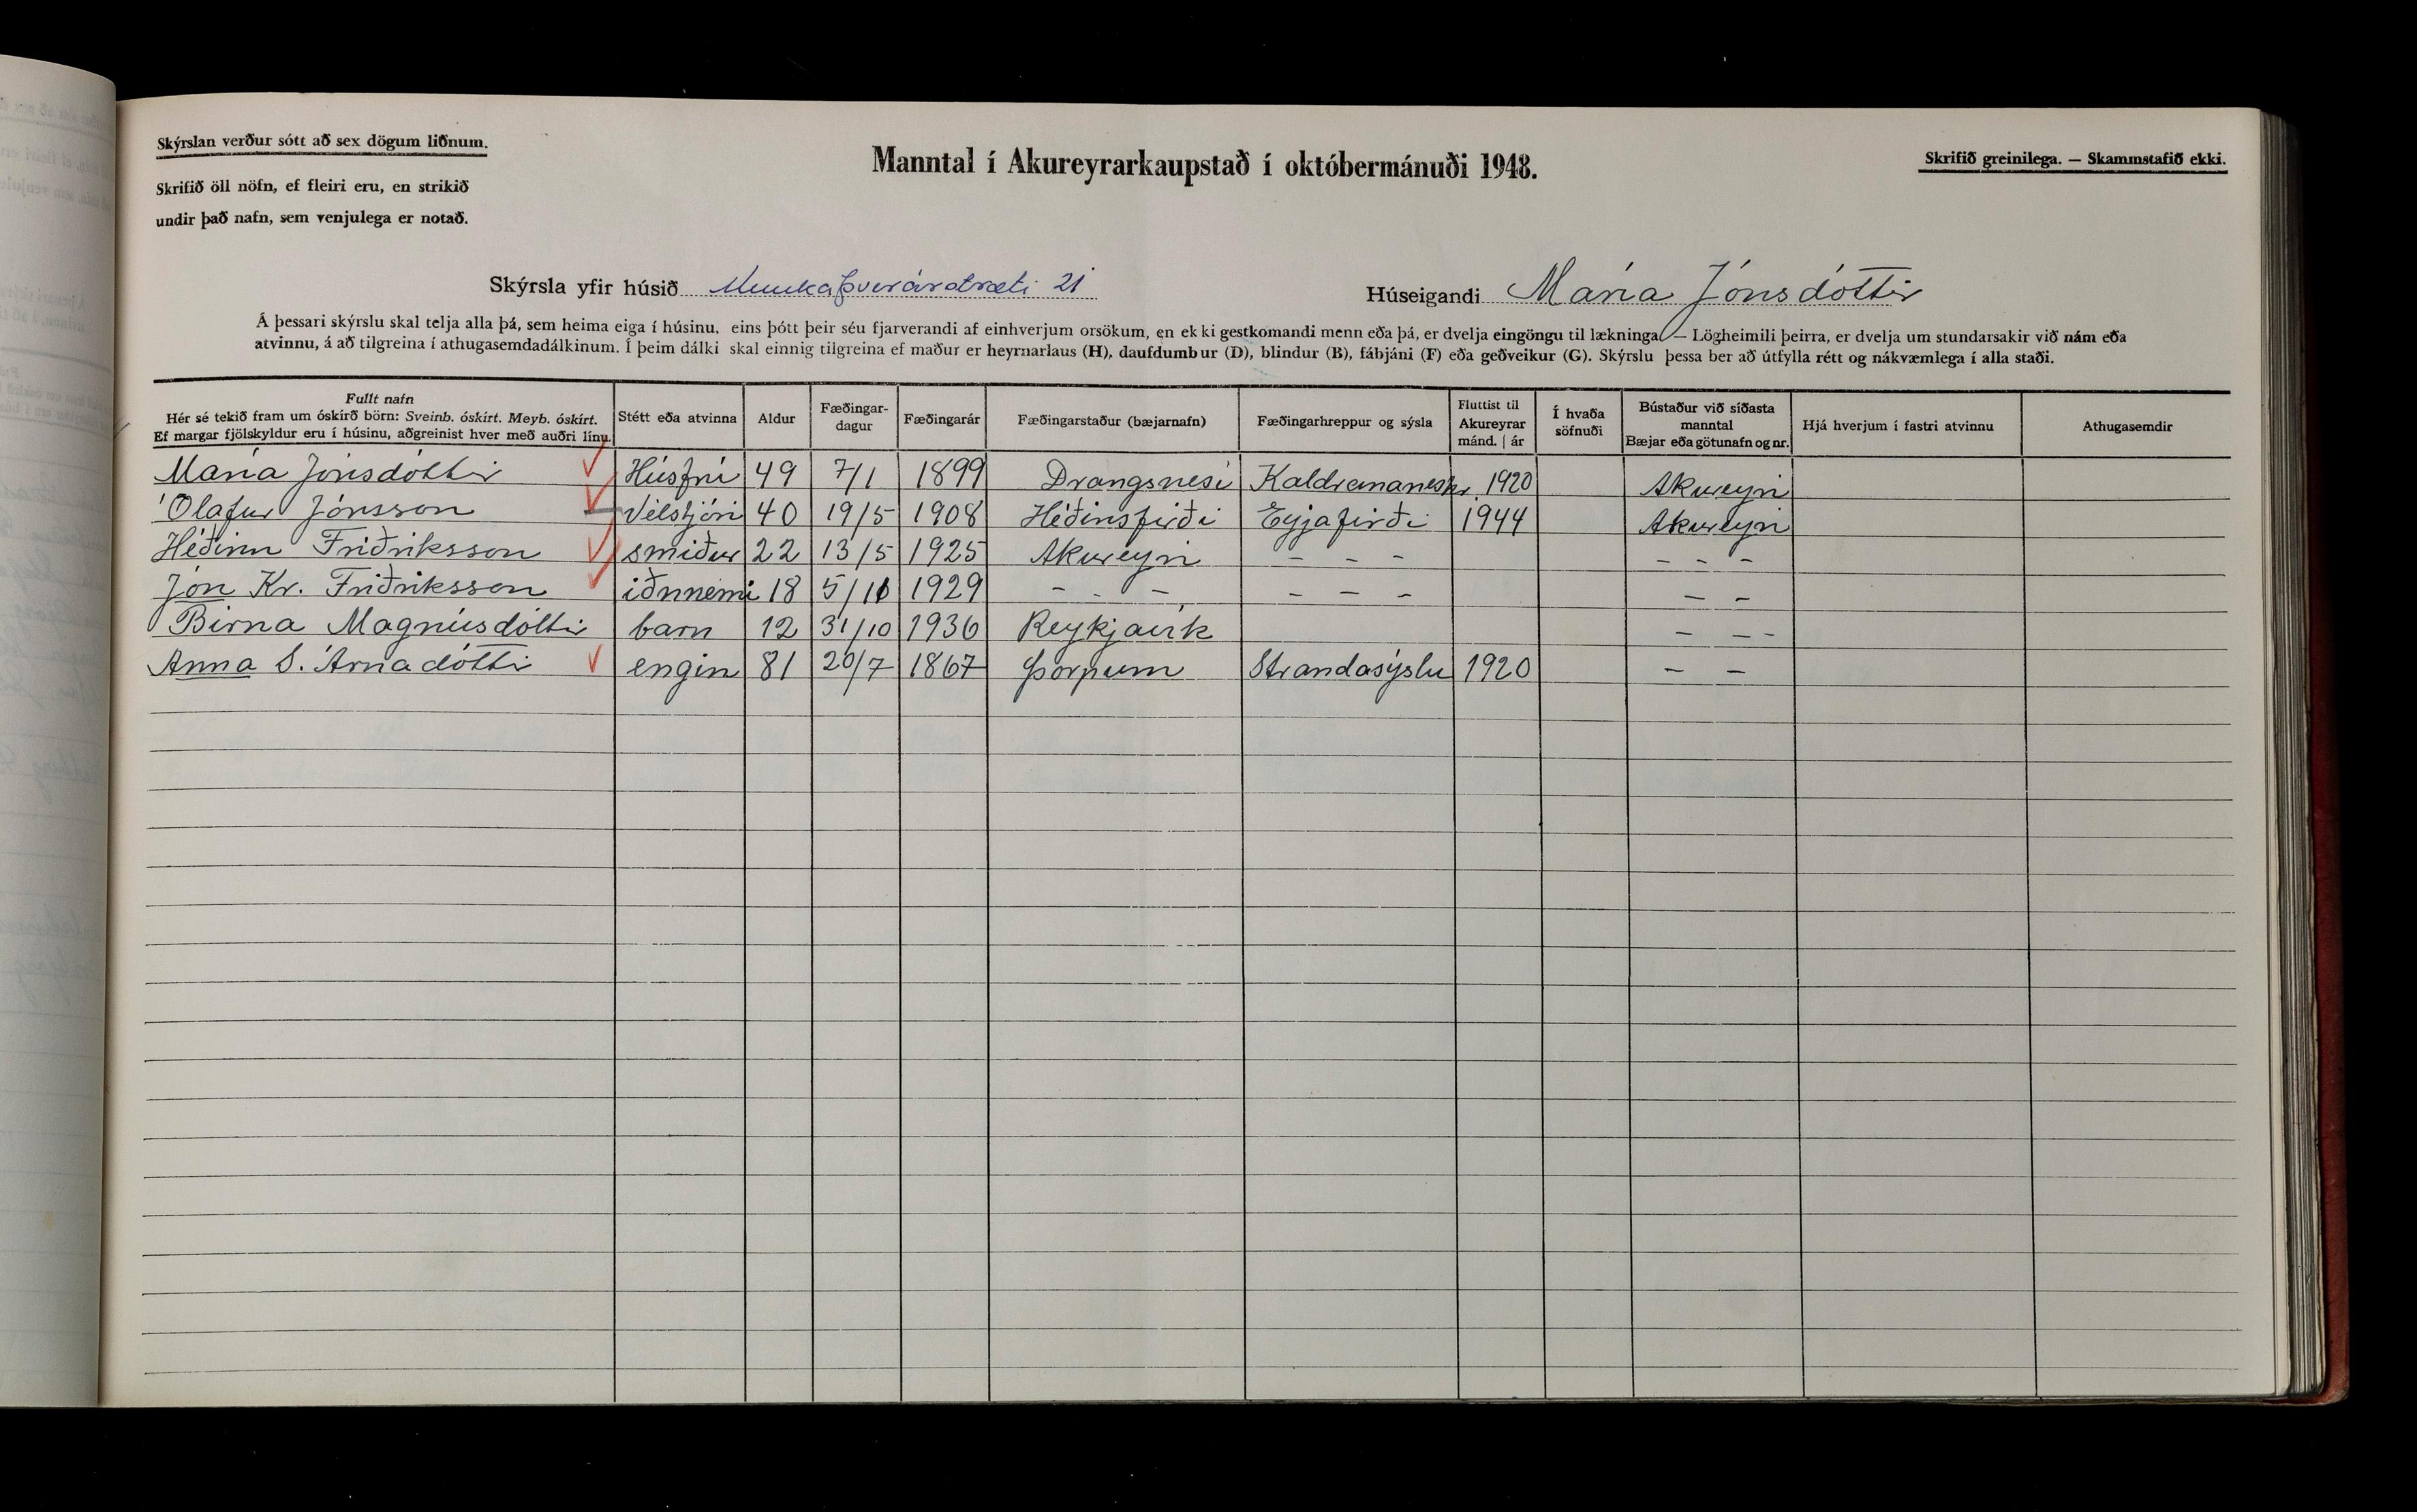 Skýrslan verður sótt að sex dögum liðnum.
Skrifið öll nöfn, ef fleiri eru, en strikið
undir það nafn, sem venjulega er notað.
Manntal í Akureyrarkaupstað í októbermánuði 1948.
Skrifið greinilega. — Skammstafið ekki.
Skýrsla yfir húsið Munkaþverárstræti 21
Húseigandi María Jónsdóttir
Á þessari skýrslu skal telja alla þá, sem heima eiga í húsinu, eins þótt þeir séu fjarverandi af einhverjum orsökum, en ekki gestkomandi menn eða þá, er dvelja eingöngu til lækninga. — Lögheimili þeirra, er dvelja um stundarsakir við nám eða
atvinnu, á að tilgreina í athugasemdadálkinum. Í þeim dálki skal einnig tilgreina ef maður er heyrnarlaus (H), daufdumbur (D), blindur (B), fábjáni (F) eða geðveikur (G). Skýrslu þessa ber að útfylla rétt og nákvæmlega í alla staði.
Fullt nafn
Hér sé tekið fram um óskírð börn: Sveinb. óskírt. Meyb. óskírt.
Ef margar fjölskyldur eru í húsinu, aðgreinist hver með auðri línu.
Stétt eða atvinna
Aldur
Fæðingar-
dagur
Fæðingarár
Fæðingarstaður (bæjarnafn)
Fæðingarhreppur og sýsla
Fluttist til
Akureyrar
mánd. | ár
Í hvaða
söfnuði
Bústaður við síðasta
manntal
Bæjar eða götunafn og nr.
Hjá hverjum í fastri atvinnu
Athugasemdir
María Jónsdóttir Húsfrú 49 7/1 1899 Drangsnesi Kaldrananeshr. 1920 Akureyri
Ólafur Jónsson Vélstjóri 40 19/5 1908 Héðinsfirði Eyjafirði 1944 Akureyri
Héðinn Friðriksson smiður 22 13/5 1925 Akureyri - - - - - -
Jón Kr. Friðriksson iðnnemi 18 5/11 1929 - - - - - - - -
Birna Magnúsdóttir barn 12 31/10 1936 Reykjavík - - -
Anna S. Árnadóttir engin 81 20/7 1867 Þorpum Strandasýslu 1920 - -